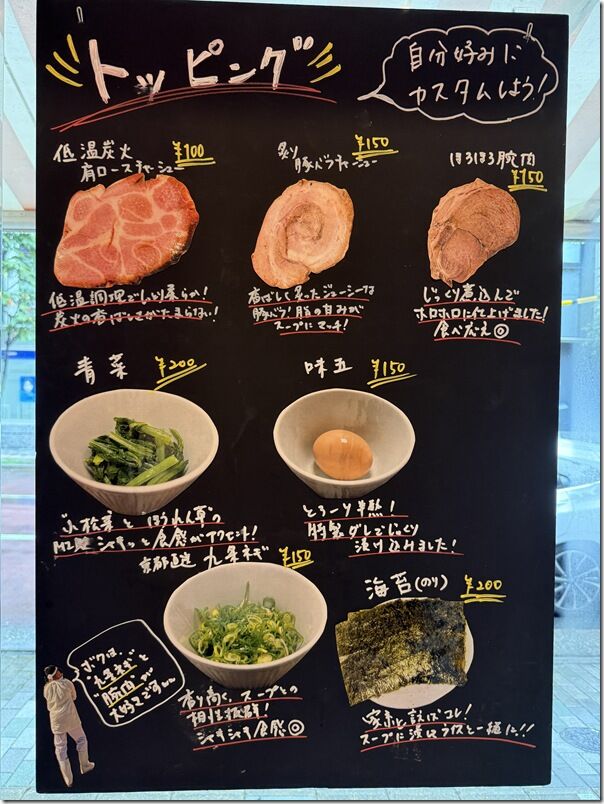 トッピング
自分好みに
カスタムしよう!
低温炭火
肩ロースチャーシュー
¥100
炙り
豚バラチャーシュー
¥150
ほろほろ腕肉
¥150
低温調理でしっとり柔らか!
炭火の香ばしさがたまらない!
香ばしく炙ったジューシーな
豚バラ!脂の甘みが
スープにマッチ!
じっくり煮込んで
ホロホロに仕上げました!
食べ応え◎
青菜
¥200
味玉
¥150
"小松菜"と"ほうれん草"の
MIX シャキッと食感がアクセント!
とろーり半熟!
特製ダレでじっくり
漬け込みました!
京都直送 九条ネギ
¥150
海苔(のり)
¥200
ボクは、
"九条ネギ"と
"腕肉"が
大好きです…
香り高く、スープとの
相性抜群!
シャキシャキ食感◎
家系と言えばコレ!
スープに浸してライスと一緒に!!